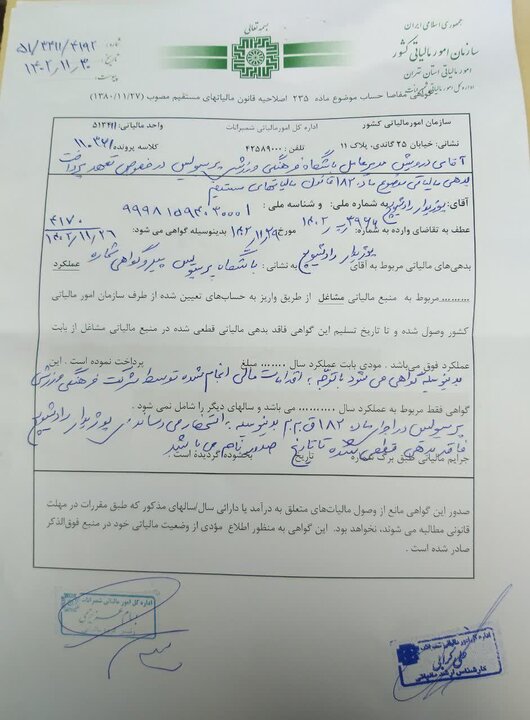 بسمه تعالی
جمهوری اسلامی ایران
سازمان امور مالیاتی کشور
امور مالیاتی استان تهران
اداره کل امور مالیاتی شمیرانات
شماره: ۵۱/۴۴۱۱/۴۱۹۲
تاریخ: ۱۴۰۲,۱۱,۳۰
پیوست:
گواهی مفاصا حساب موضوع ماده ۲۳۵ اصلاحیه قانون مالیاتهای مستقیم مصوب (۱۳۸۰/۱۱/۲۷)
سازمان امور مالیاتی کشور اداره کل امورمالیاتی شمیرانات واحد مالیاتی: ۵۱۳۴۱۱
نشانی: خیابان ۲۵ گاندی، پلاک ۱۱ تلفن: ۴۲۵۸۹۰۰۰ کلاسه پرونده: ۱۱۰۳۷
آقای درویش مدیرعامل باشگاه فرهنگی ورزشی پرسپولیس در خصوص تعهد پرداخت
بدهی مالیاتی موضوع ماده ۱۸۲ قانون مالیاتهای مستقیم
آقای: بوژیدار رادوشویچ به شماره ملی: و شناسه ملی:
عطف به تقاضای وارده به شماره: مورخ بدینوسیله گواهی می شود: ۴۱۷۰
۱۴۰۲,۱۱,۲۶
بدهی‌های مالیاتی مربوط به آقای بوژیدار رادوشویچ به نشانی: باشگاه پرسپولیس پیرو گواهی شماره عملکرد
......... مربوط به منبع مالیاتی مشاغل از طریق واریز به حساب‌های تعیین شده از طرف سازمان امور مالیاتی
کشور وصول شده و تا تاریخ تسلیم این گواهی فاقد بدهی مالیاتی قطعی شده در منبع مالیاتی مشاغل از بابت
عملکرد فوق می‌باشد. مودی بابت عملکرد سال ........ مبلغ پرداخت نموده است. این
بدینوسیله گواهی می شود باتوجه به اقدامات مالی انجام شده توسط شرکت فرهنگی ورزشی
گواهی فقط مربوط به عملکرد سال .......... می باشد و سالهای دیگر را شامل نمی شود.
پرسپولیس در اجرای ماده ۱۸۲ ق.م.م بدینوسیله به استحضار می رساند آقای بوژیدار رادوشویچ
فاقد بدهی قطعی شده تا تاریخ صدور نامه می باشد
جرایم مالیاتی طبق برگ شماره تاریخ بخشوده گردیده است.
صدور این گواهی مانع از وصول مالیات‌های متعلق به درآمد یا دارائی سال/سالهای مذکور که طبق مقررات در مهلت
قانونی مطالبه می شوند، نخواهد بود. این گواهی به منظور اطلاع مؤدی از وضعیت مالیاتی خود در منبع فوق‌الذکر
صادر شده است.
اداره کل امور مالیاتی شمیرانات
اداره کل امور مالیاتی شمیرانات